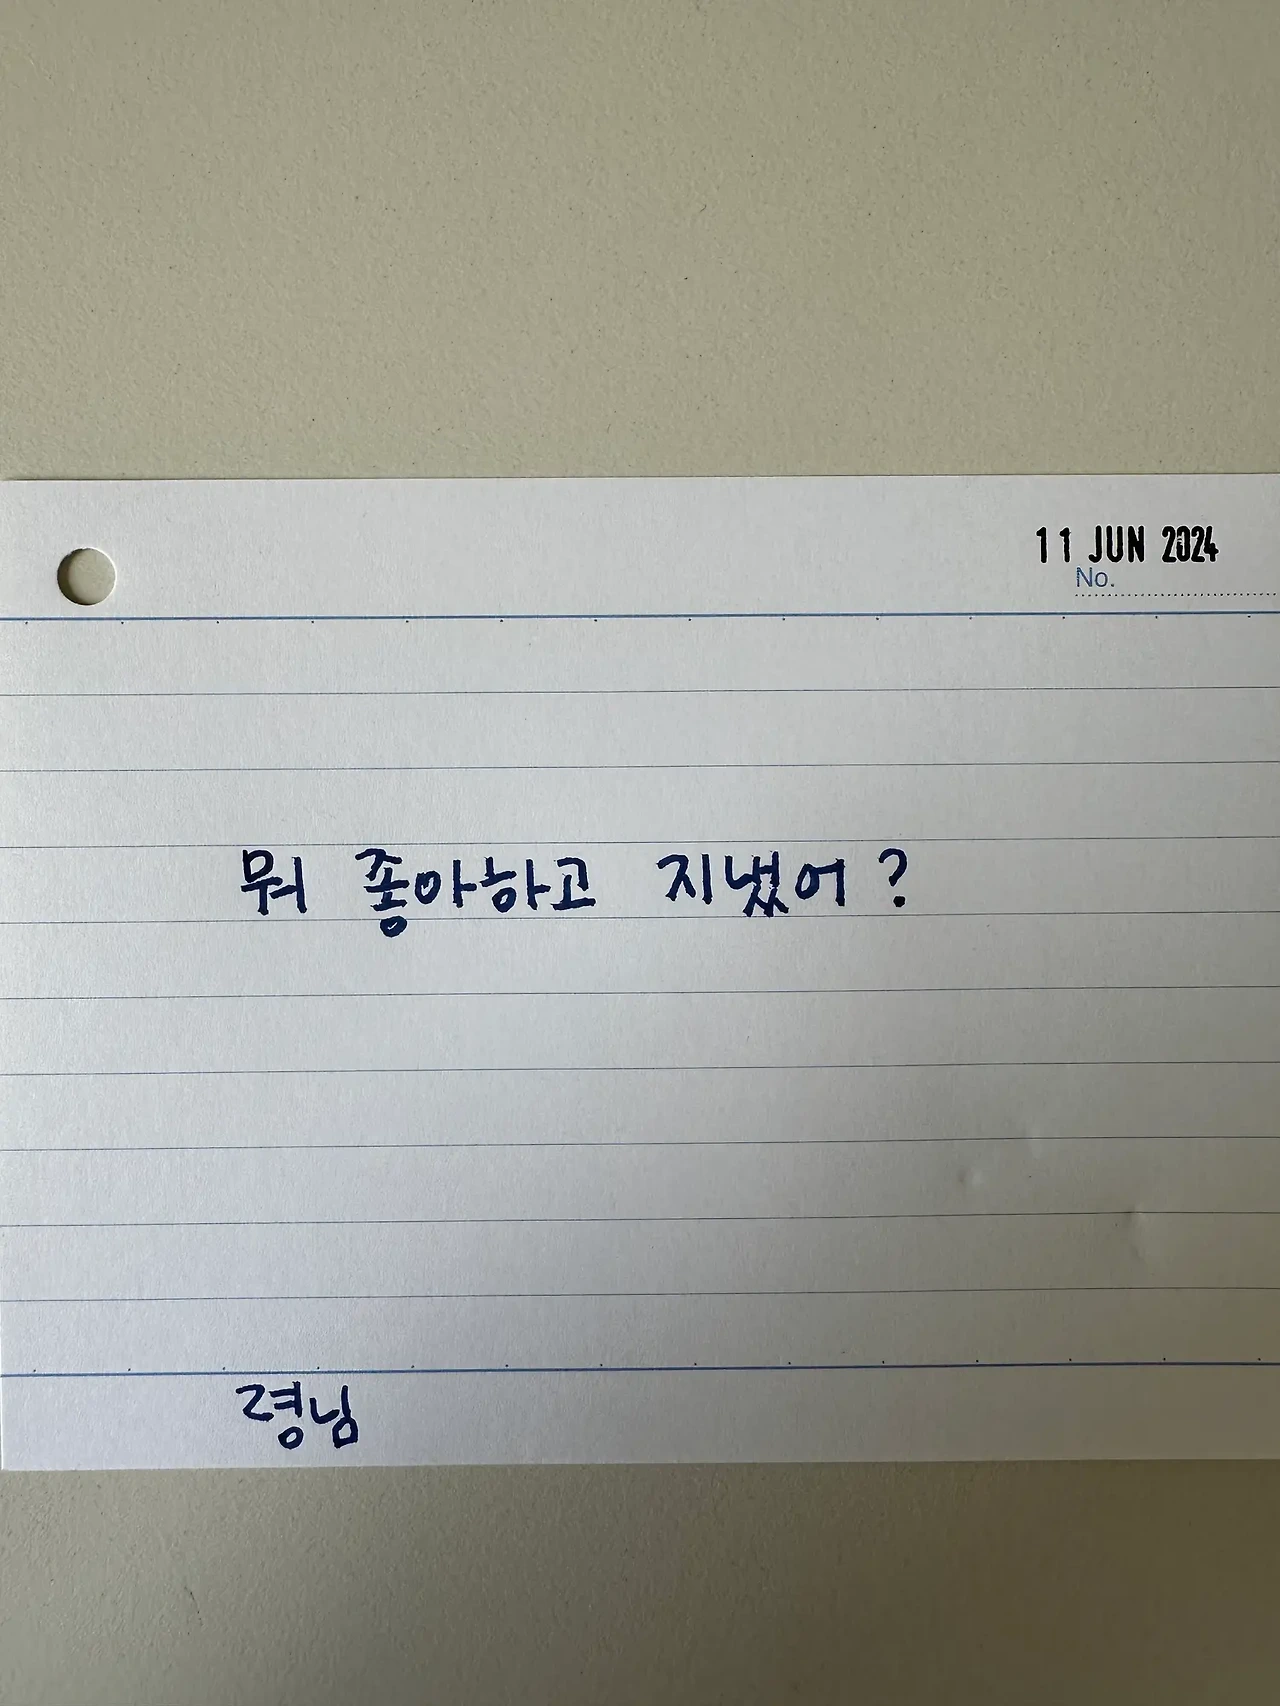 11 JUN 2024
No.
뭐 좋아하고 지냈어?
령님